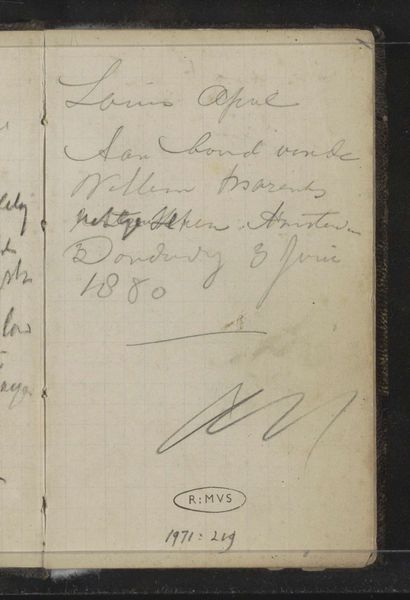 Louis Apol
Aan boord van de
Willem Barents
Amster-
Donderdag 3 Juni
1880
R:MVS
1971:219
low